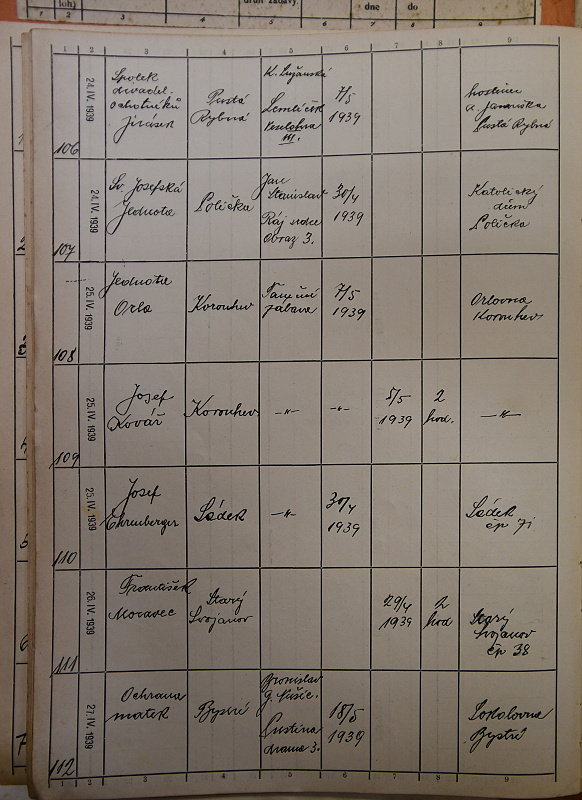 loh)
druh zábavy.
dne
do
1 2 3 4 5 6 7 8 9
24. IV. 1939
Spolek
divadel.
ochotníků
Jirásek
Pustá
Rybná
K.
III.
7/5
1939
hostinec
Pustá Rybná
106
24. IV. 1939
Sv. Josefská
Jednota
Polička
Jan
Stanislav
Ráj srdce
obraz 3.
30/4
1939
Katolický
dům
Polička
107
25. IV. 1939
Jednota
Orla
Korouhev
Taneční
zábava
7/5
1939
Orlovna
Korouhev
108
25. IV. 1939
Josef
Kovář
Korouhev
-"-
-"-
5/5
1939
2
hod.
-"-
109
25. IV. 1939
Josef
Ehrenberger
Sádek
-"-
30/4
1939
Sádek
čp 71
110
26. IV. 1939
František
Moravec
Starý
Svojanov
29/4
1939
2
hod
Starý
Svojanov
čp 38
111
27. IV. 1939
Ochrana
matek
Bystré
Bronislav
G. Nušič.
Pustina
drama 3.
18/5
1939
Sokolovna
Bystré
112
1 2 3 4 5 6 7 8 9